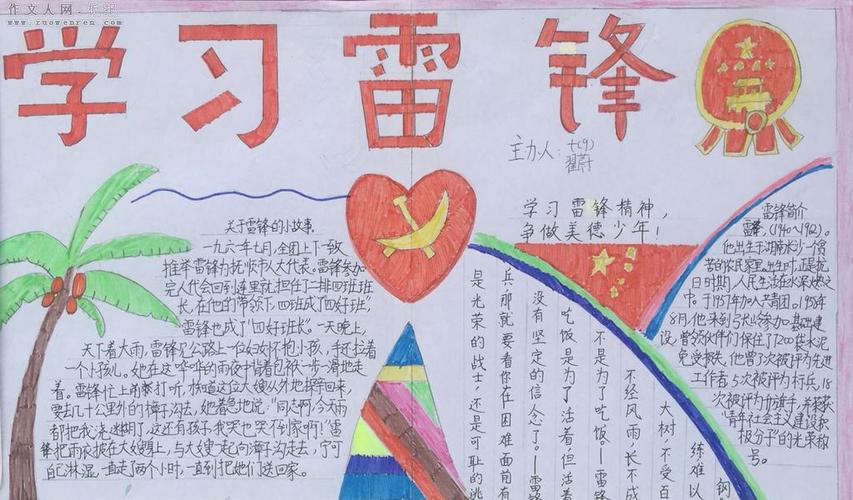 作文人网
www.zuowenren.com
学习雷锋
主办人：七(9)
翟蔚
学习雷锋精神，
争做美德少年！
关于雷锋的小故事
一九六一年七月，全团上下一致
推举雷锋为抚顺市人大代表。雷锋参加
完人代会回到连里就担任了二排四班班
长，在他的带领下，四班成了“四好班”，
雷锋也成了“四好班长”。一天晚上，
天下着大雨，雷锋见公路上一位妇女怀抱小孩，手还拉着
一个小孩儿。她在这哗哗的雨夜中背着包被一步一滑地走
着。雷锋忙上前打听，
要去几十里外的樟子沟去，她着急地说：“同志啊，今天雨
都把我浇迷糊了，这还有孩子我哭也哭不到家啊！”雷
锋把雨衣披在大嫂身上，与大嫂一起向樟子沟走去，宁可
自己淋湿一直走了两个小时，一直到把她们送回家。
雷锋简介
雷锋，(1940～1962)。
他出生于湖南
苦的农民家里出生时，正是抗
日时期，人民生活在水深火热之
中。于1957年加入共青团。1958年
8月，他来到弓长岭参加基础建
设，曾领伙伴们保住了7200袋水泥
免受损失，他曾3次被评为先进
工作者5次被评为标兵，18
次被评为红旗手，并荣获
“青年社会主义建设积
极分子”的光荣称
号。
钢
练难以
大树，不受百
不经风雨，长不成
不是为了吃饭。—雷锋
吃饭是为了活着，但活着
没有坚定的信念了。—雷锋
兵，那就要看你在困难面前有
是光荣的战士，还是可耻的逃